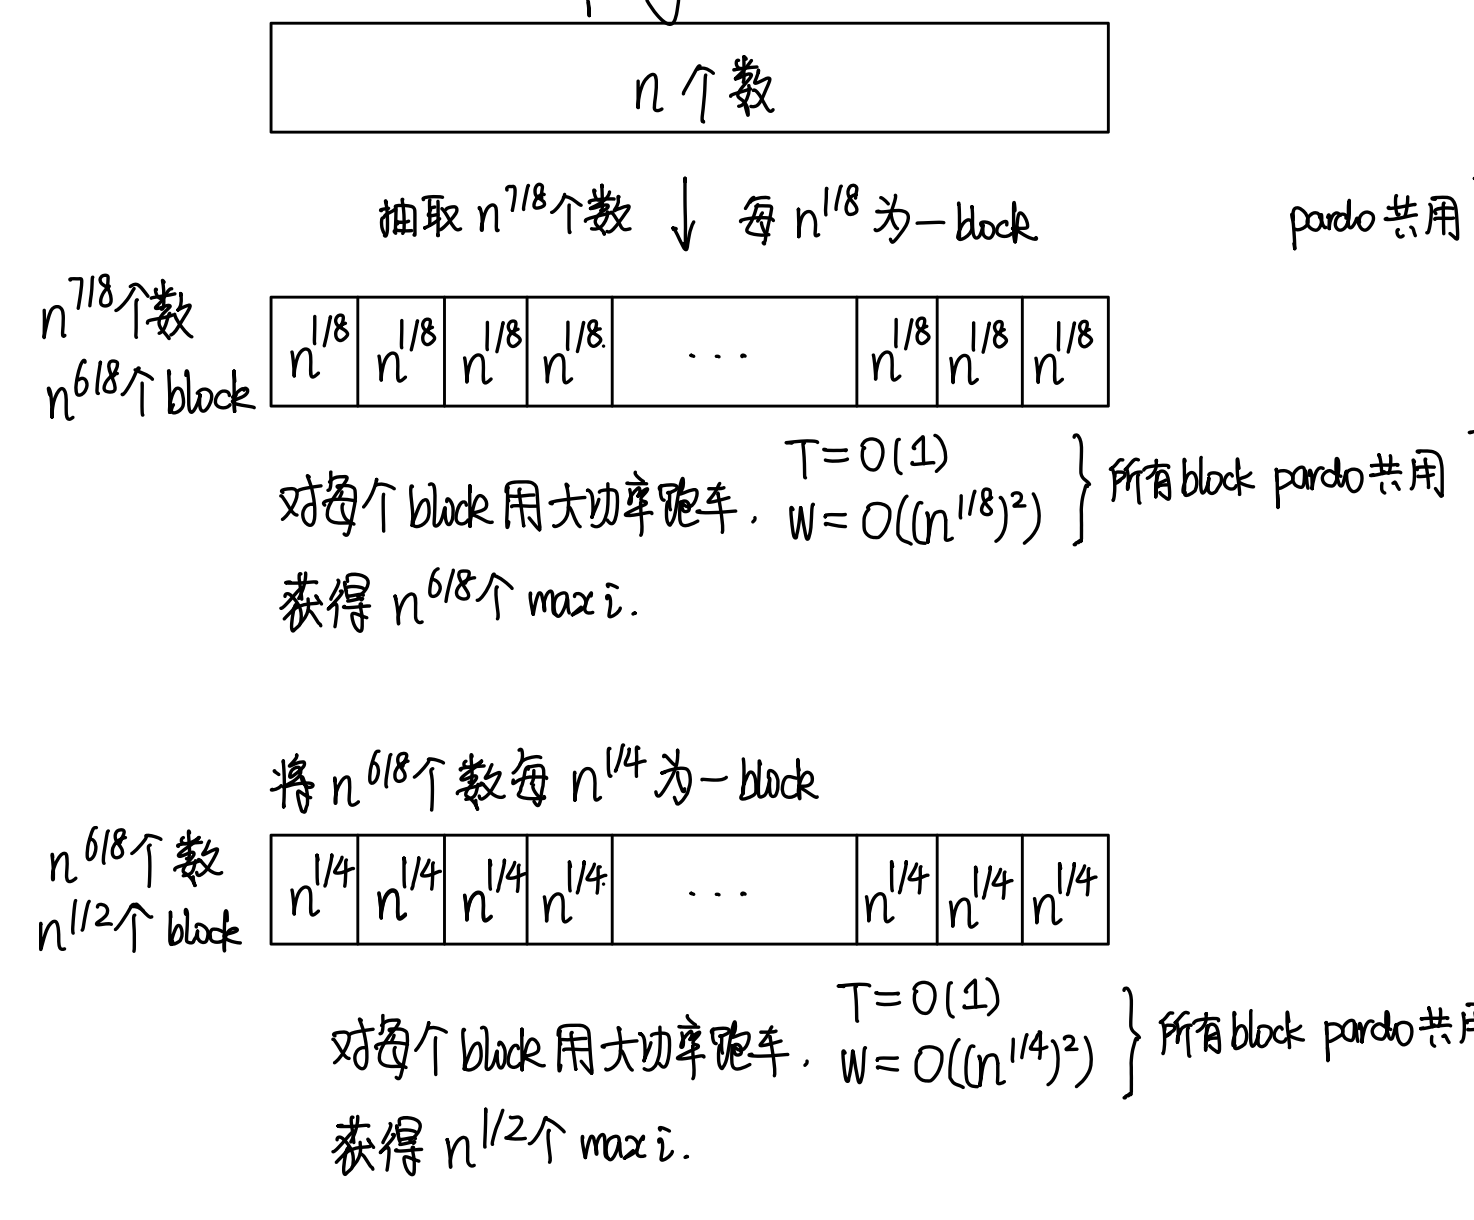 n个数
抽取 n^{7/8}个数 ↓ 每 n^{1/8} 为一block
pardo 共用
n^{7/8}个数
n^{6/8}个 block
n^{1/8} n^{1/8} n^{1/8} n^{1/8} ... n^{1/8} n^{1/8} n^{1/8}
对每个 block 用大功率跑车. T=O(1) W=O((n^{1/8})^2) } 所有block pardo共用
获得 n^{6/8}个 max i.
将 n^{6/8}个数每 n^{1/4} 为一block
n^{6/8}个数
n^{1/2}个 block
n^{1/4} n^{1/4} n^{1/4} n^{1/4} ... n^{1/4} n^{1/4} n^{1/4}
对每个 block 用大功率跑车. T=O(1) W=O((n^{1/4})^2) } 所有block pardo共用
获得 n^{1/2}个 max i.